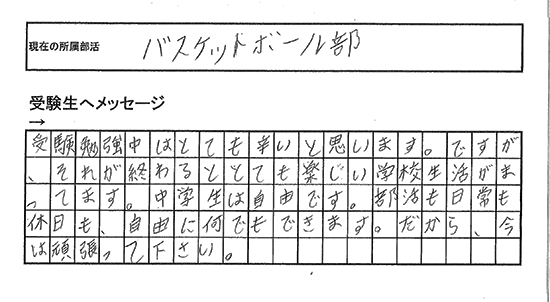 現在の所属部活
バスケットボール部
受験生へメッセージ
→
受験勉強中はとても辛いと思います。ですが
、それが終わるととても楽しい学校生活がま
ってます。中学生は自由です。部活も日常も
休日も、自由に何でもできます。だから、今
は頑張って下さい。